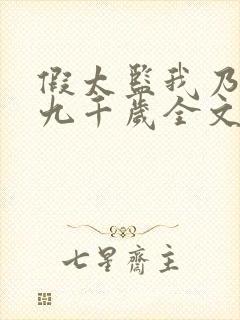 假太监我乃
九千岁全文
七星齋主